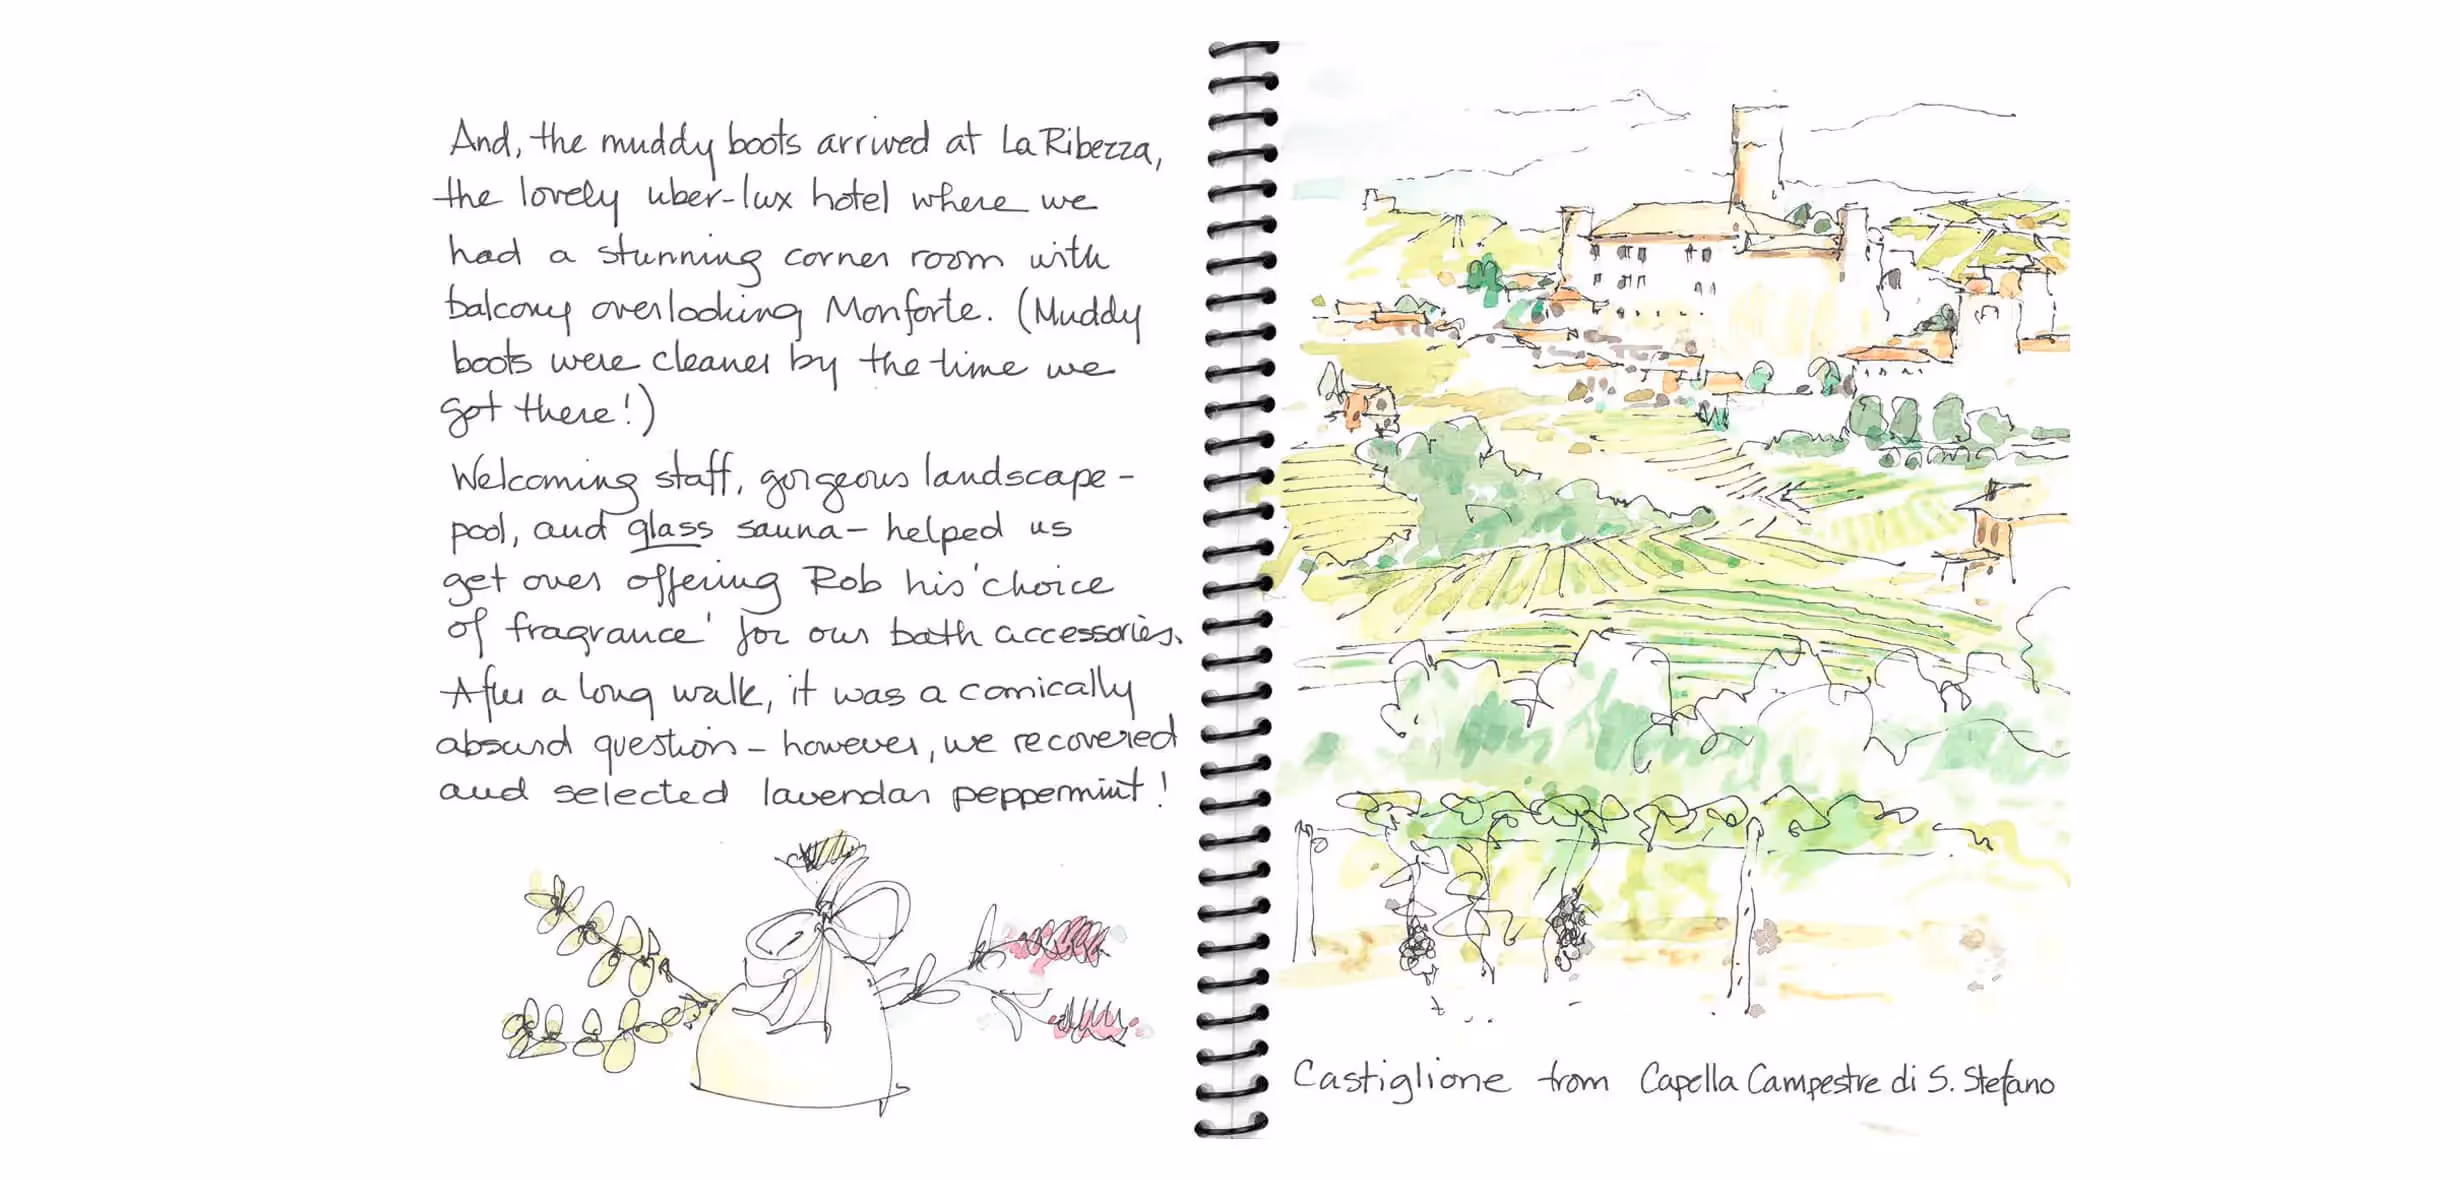 And, the muddy boots arrived at La Ribezza,
the lovely uber-lux hotel where we
had a stunning corner room with
balcony overlooking Monforte. (Muddy
boots were cleaner by the time we
got there!)
Welcoming staff, gorgeous landscape -
pool, and glass sauna - helped us
get over offering Rob his 'choice
of fragrance' for our bath accessories.
After a long walk, it was a comically
absurd question - however, we recovered
and selected lavendar peppermint!
Castiglione from Capella Campestre di S. Stefano